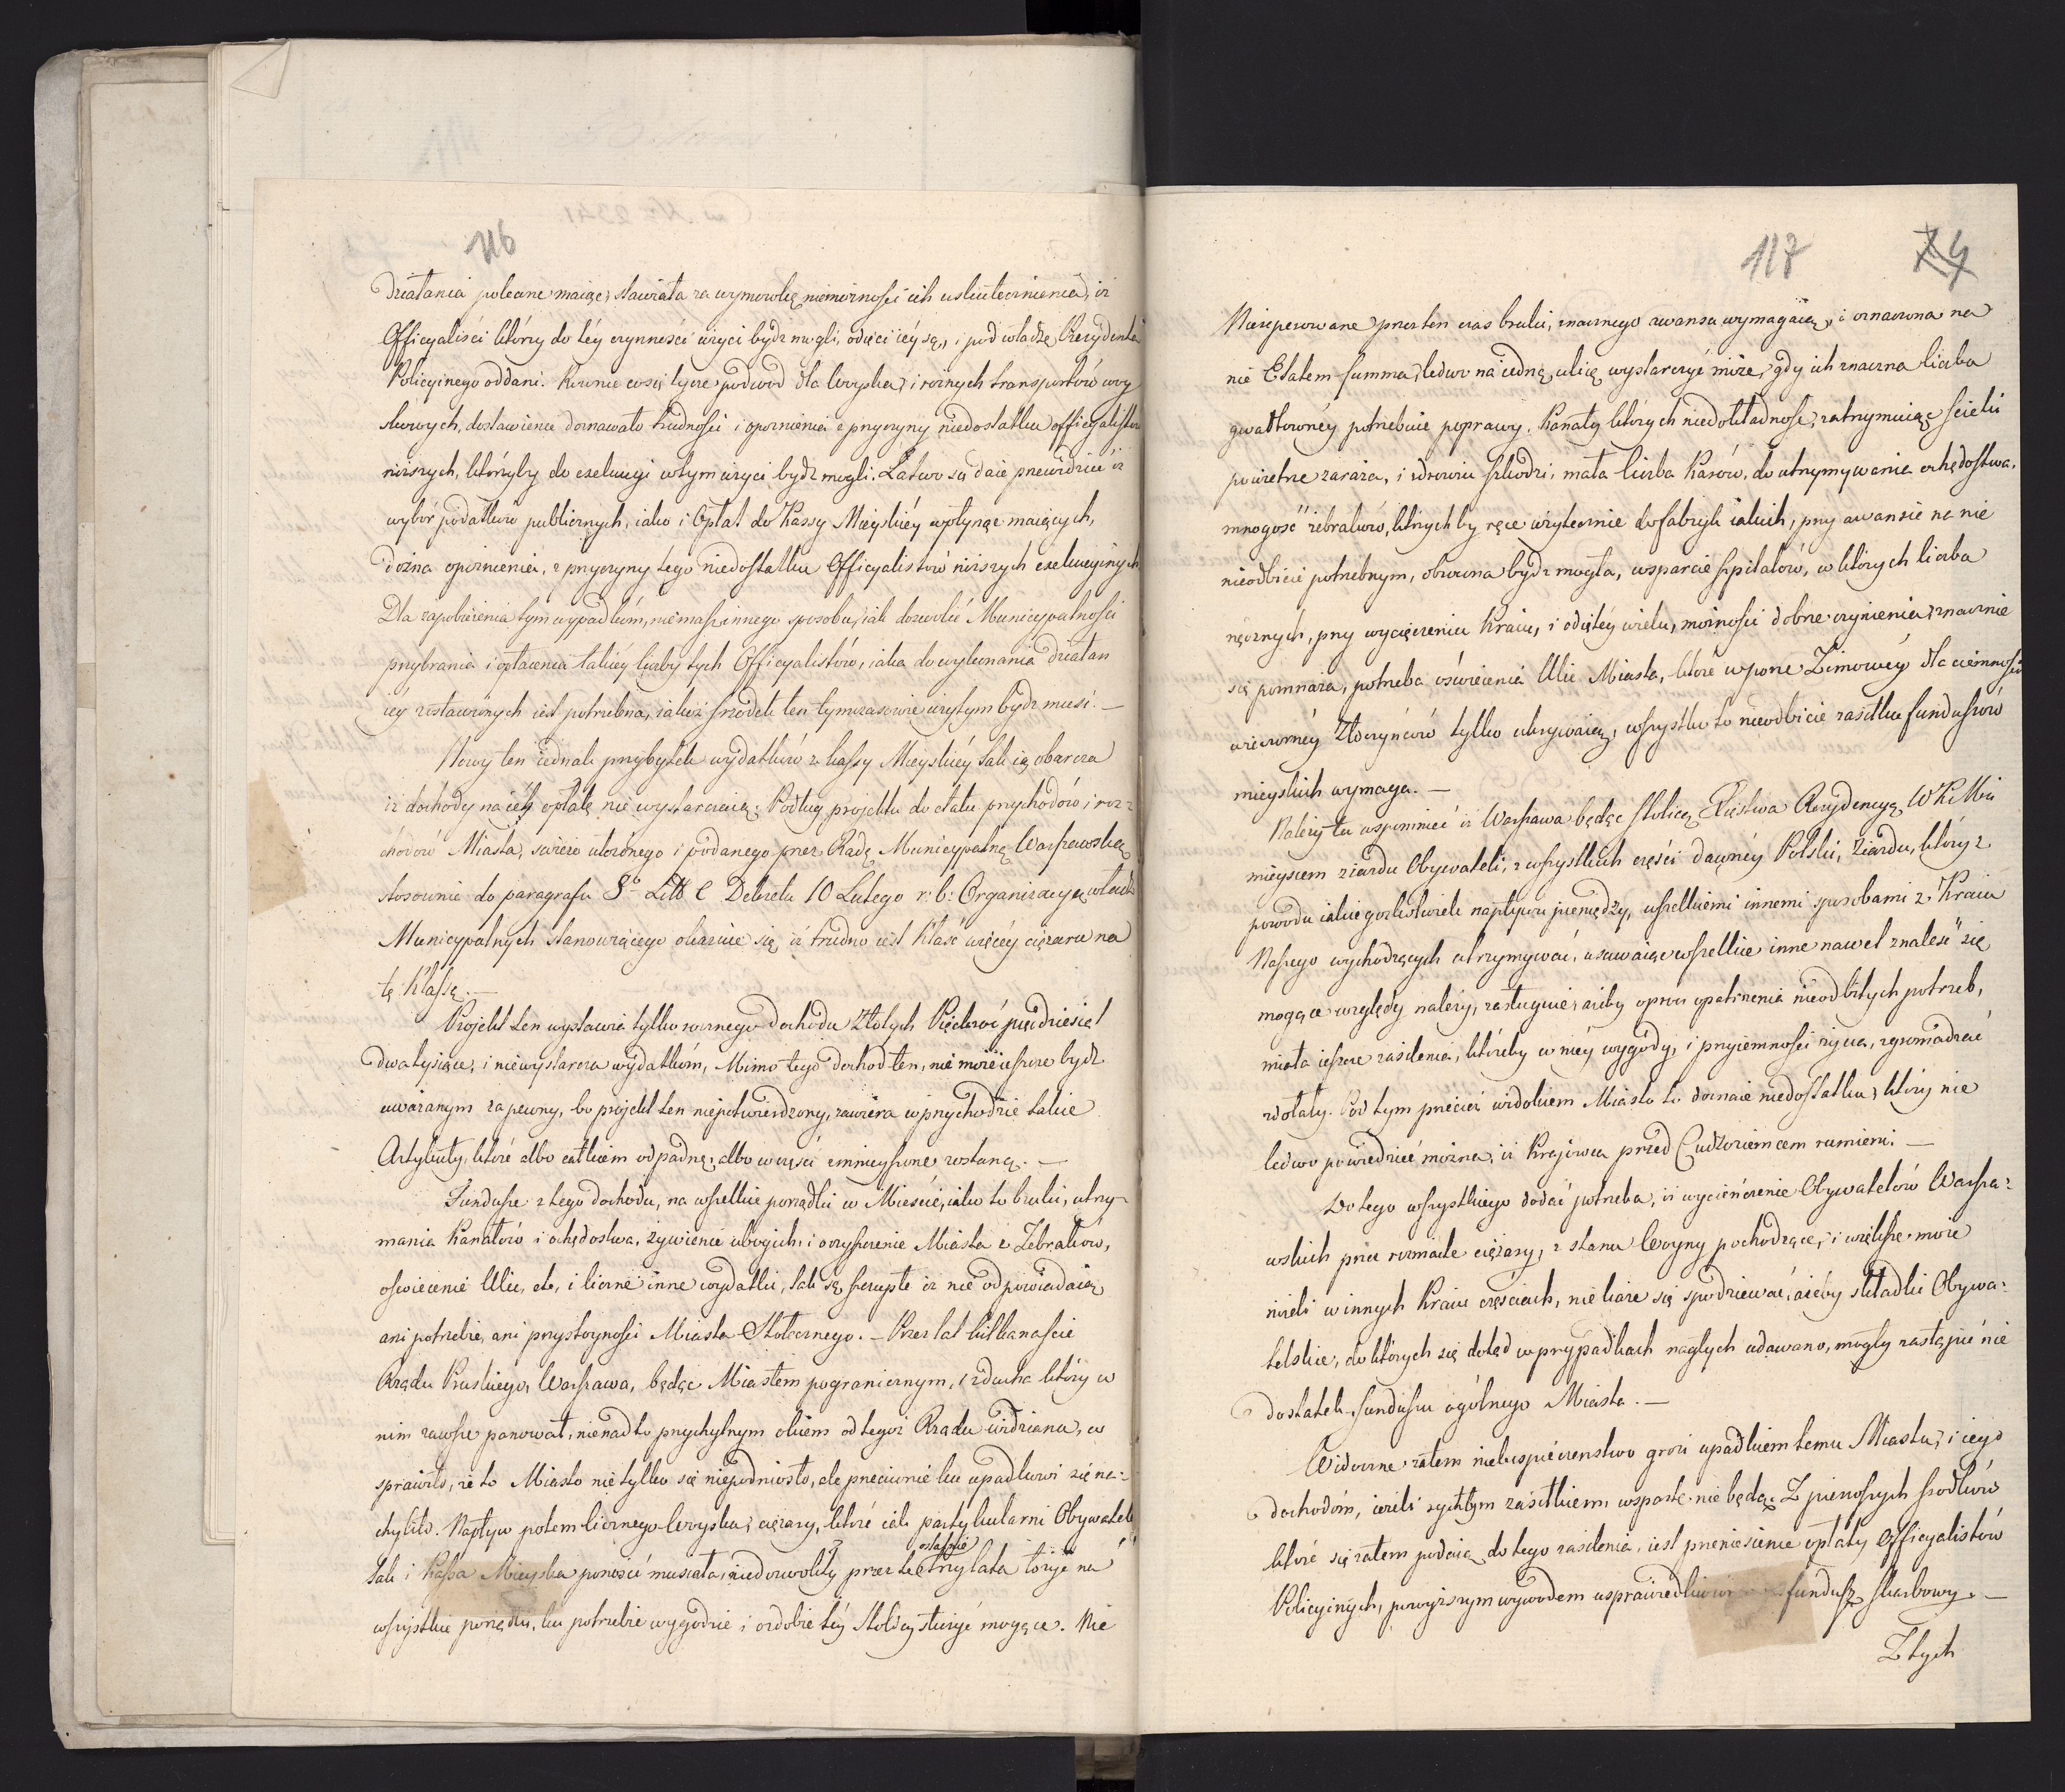 116
działania polecone maiąc, stawiała za wymówkę niemożności ich uskutecznienia, iż
Officyaliści którzy do téy czynności użyci bydź mogli, odięci iéy są, i pod władzę Prezydenta
Policyinego oddani. Równie co się tycze podwod dla Woyska, i rożnych transportów woy
skowych, dostawienie doznawało trudności i opóznienia z przyczyny niedostatku officyalistów
niższych, którzyby do exekucyi w tym użyci bydź mogli. Łatwo się daie przewidzieć iż
wybór podatków publicznych, iako i Opłat do Kassy Mieyskiéy wpłynąć maiących,
dozna opóznienia, z przyczyny tego niedostatku Officyalistów niższych exekucyinych
Dla zapobieżenia tym wypadkóm, niemasz innego sposobu, iak dozwolić Municypalności
przybrania i opłacenia takiéy liczby tych Officyalistów, iaka do wykonania działań
iéy zostawionych iest potrzebna, iakoż srzodek ten tymczasowie użytym bydź musi. —
Nowy ten iednak przybytek wydatków z kassy Mieyskiéy tak ią obarcza
iż dochody na iéy opłatę nie wystarczaią. Podług projektu do etatu przychodów i roz=
chodów Miasta, świeżo ułożonego i podanego przez Radę Municypalną Warszawską
stosownie do paragrafu 8º Litt C Dekretu 10 Lutego r: b: Organizacyą władz
Municypalnych stanowiącego okazuie się iż trudno iest kłaść więcéy ciężaru na
tę Klassę. —
Projekt ten wystawia tylko rocznego dochodu Złotych Pięćkroć pięćdziesiąt
dwa tysiące, i niewystarcza wydatkóm, Mimo tego dochod ten, nie może ieszcze bydź
uważanym za pewny, bo projekt ten niepotwierdzony, zawiéra w przychodzie takie
Artykuły, które albo całkiem odpadną, albo w części zmnieyszone zostaną. —
Fundusze z tego dochodu, na wszelkie porządki w Mieście, iako to bruki, utrzy=
mania Kanałów i ochędostwa, żywienie ubogich, i oczyszczenie Miasta z Żebraków,
oświecenie Ulic, etc, i liczne inne wydatki, tak są szczupłe iż nie odpowiadaią
ani potrzebie, ani przystoyności Miasta Stołecznego. — Przez lat kilkanaście
Rządu Pruskiego, Warszawa, będąc Miastem pograniczném, i z ducha który w
nim zawsze panował, nienadto przychylnym okiem od tegoż Rządu widziana, co
sprawiło, że to Miasto nie tylko się niepodniosło, ale przeciwnie ku upadkowi się na=
chyliło. Napływ potem licznego Woyska, ciężary, które iak partykularni Obywatele
tak i Kassa Mieyska ponosić musiała, niedozwoliły przez te ostatnie trzy lata łożyć na
wszystkie porządki, ku potrzebie wygodzie i ozdobie téy Stolicy służyć mogące. Nie
117 74
Nieiperowane przez ten czas bruki, znacznego awansu wymagaią, i oznaczona na
nie Etatem summa, ledwo na iedną ulicę wystarczyć może, gdy ich znaczna liczba
gwałtownéy potrzebuie poprawy. Kanały których niedokładność, zatrzymuiąc ścieki
powietrze zaraża, i zdrowiu szkodzi, mała liczba Karów, do utrzymywania ochędostwa,
mnogość żebraków, których by ręce użytecznie do fabryk iakich, przy awansie na nie
nieodbicie potrzebnym, obrócona bydź mogła, wsparcie szpitalów, w których liczba
nędznych, przy wycięczeniu Kraiu, i odiętéy wielu, możności dobrze czynienia, znacznie
się pomnaża, potrzeba oświecenia Ulic Miasta, które w porze Zimowéy dla ciemności
wieczornéy Złoczyńców tylko ukrywaią, wszystko to nieodbicie zasiłku funduszów
mieyskich wymaga. —
Należy tu wspomnieć iż Warszawa będąc Stolicą Xięstwa Rezydencyą WKMci
mieyscem ziazdu Obywateli, z wszystkich części dawnéy Polski, Ziazdu, który z
powodu iakiegożkolwiek napływu pieniędzy, wszelkiemi innemi sposobami z Kraiu
Naszego wychodzących utrzymywać, usuwaiąc wszelkie inne nawet znaleść się
mogące względy należy, zasługuie, ażeby oprócz opatrzenia nieodbitych potrzeb,
miała ieszcze zasilenia, któreby w niéy wygody, i przyiemności życia, zgromadzać
zdołały. Pod tym przecież widokiem Miasto to doznaie niedostatku, który nie
ledwo powiedzieć można, iż Krajowca przed Cudzoziemcem rumieni. —
Do tego wszystkiego dodać potrzeba, iż wycieńczenie Obywatelów Warsza=
wskich przez rozmaite ciężary, z stanu Woyny pochodzące, i większe może
niżeli w innych Kraiu częściach, nie każe się spodziewać, ażeby składki Obywa=
telskie, do których się dotąd w przypadkach nagłych udawano, mogły zastąpić nie
dostatek funduszu ogólnego Miasta. —
Widoczne zatem niebezpieczenstwo grozi upadkiem temu Miastu, i iego
dochodóm, ieżeli rychłym zasiłkiem wsparte nie będą. Z pierwszych srodków
które się zatem podaią do tego zasilenia, iest przeniesienie opłaty Officyalistów
Policyinych, powyższym wywodem usprawiedliwione fundusz skarbowy. —
Z tych